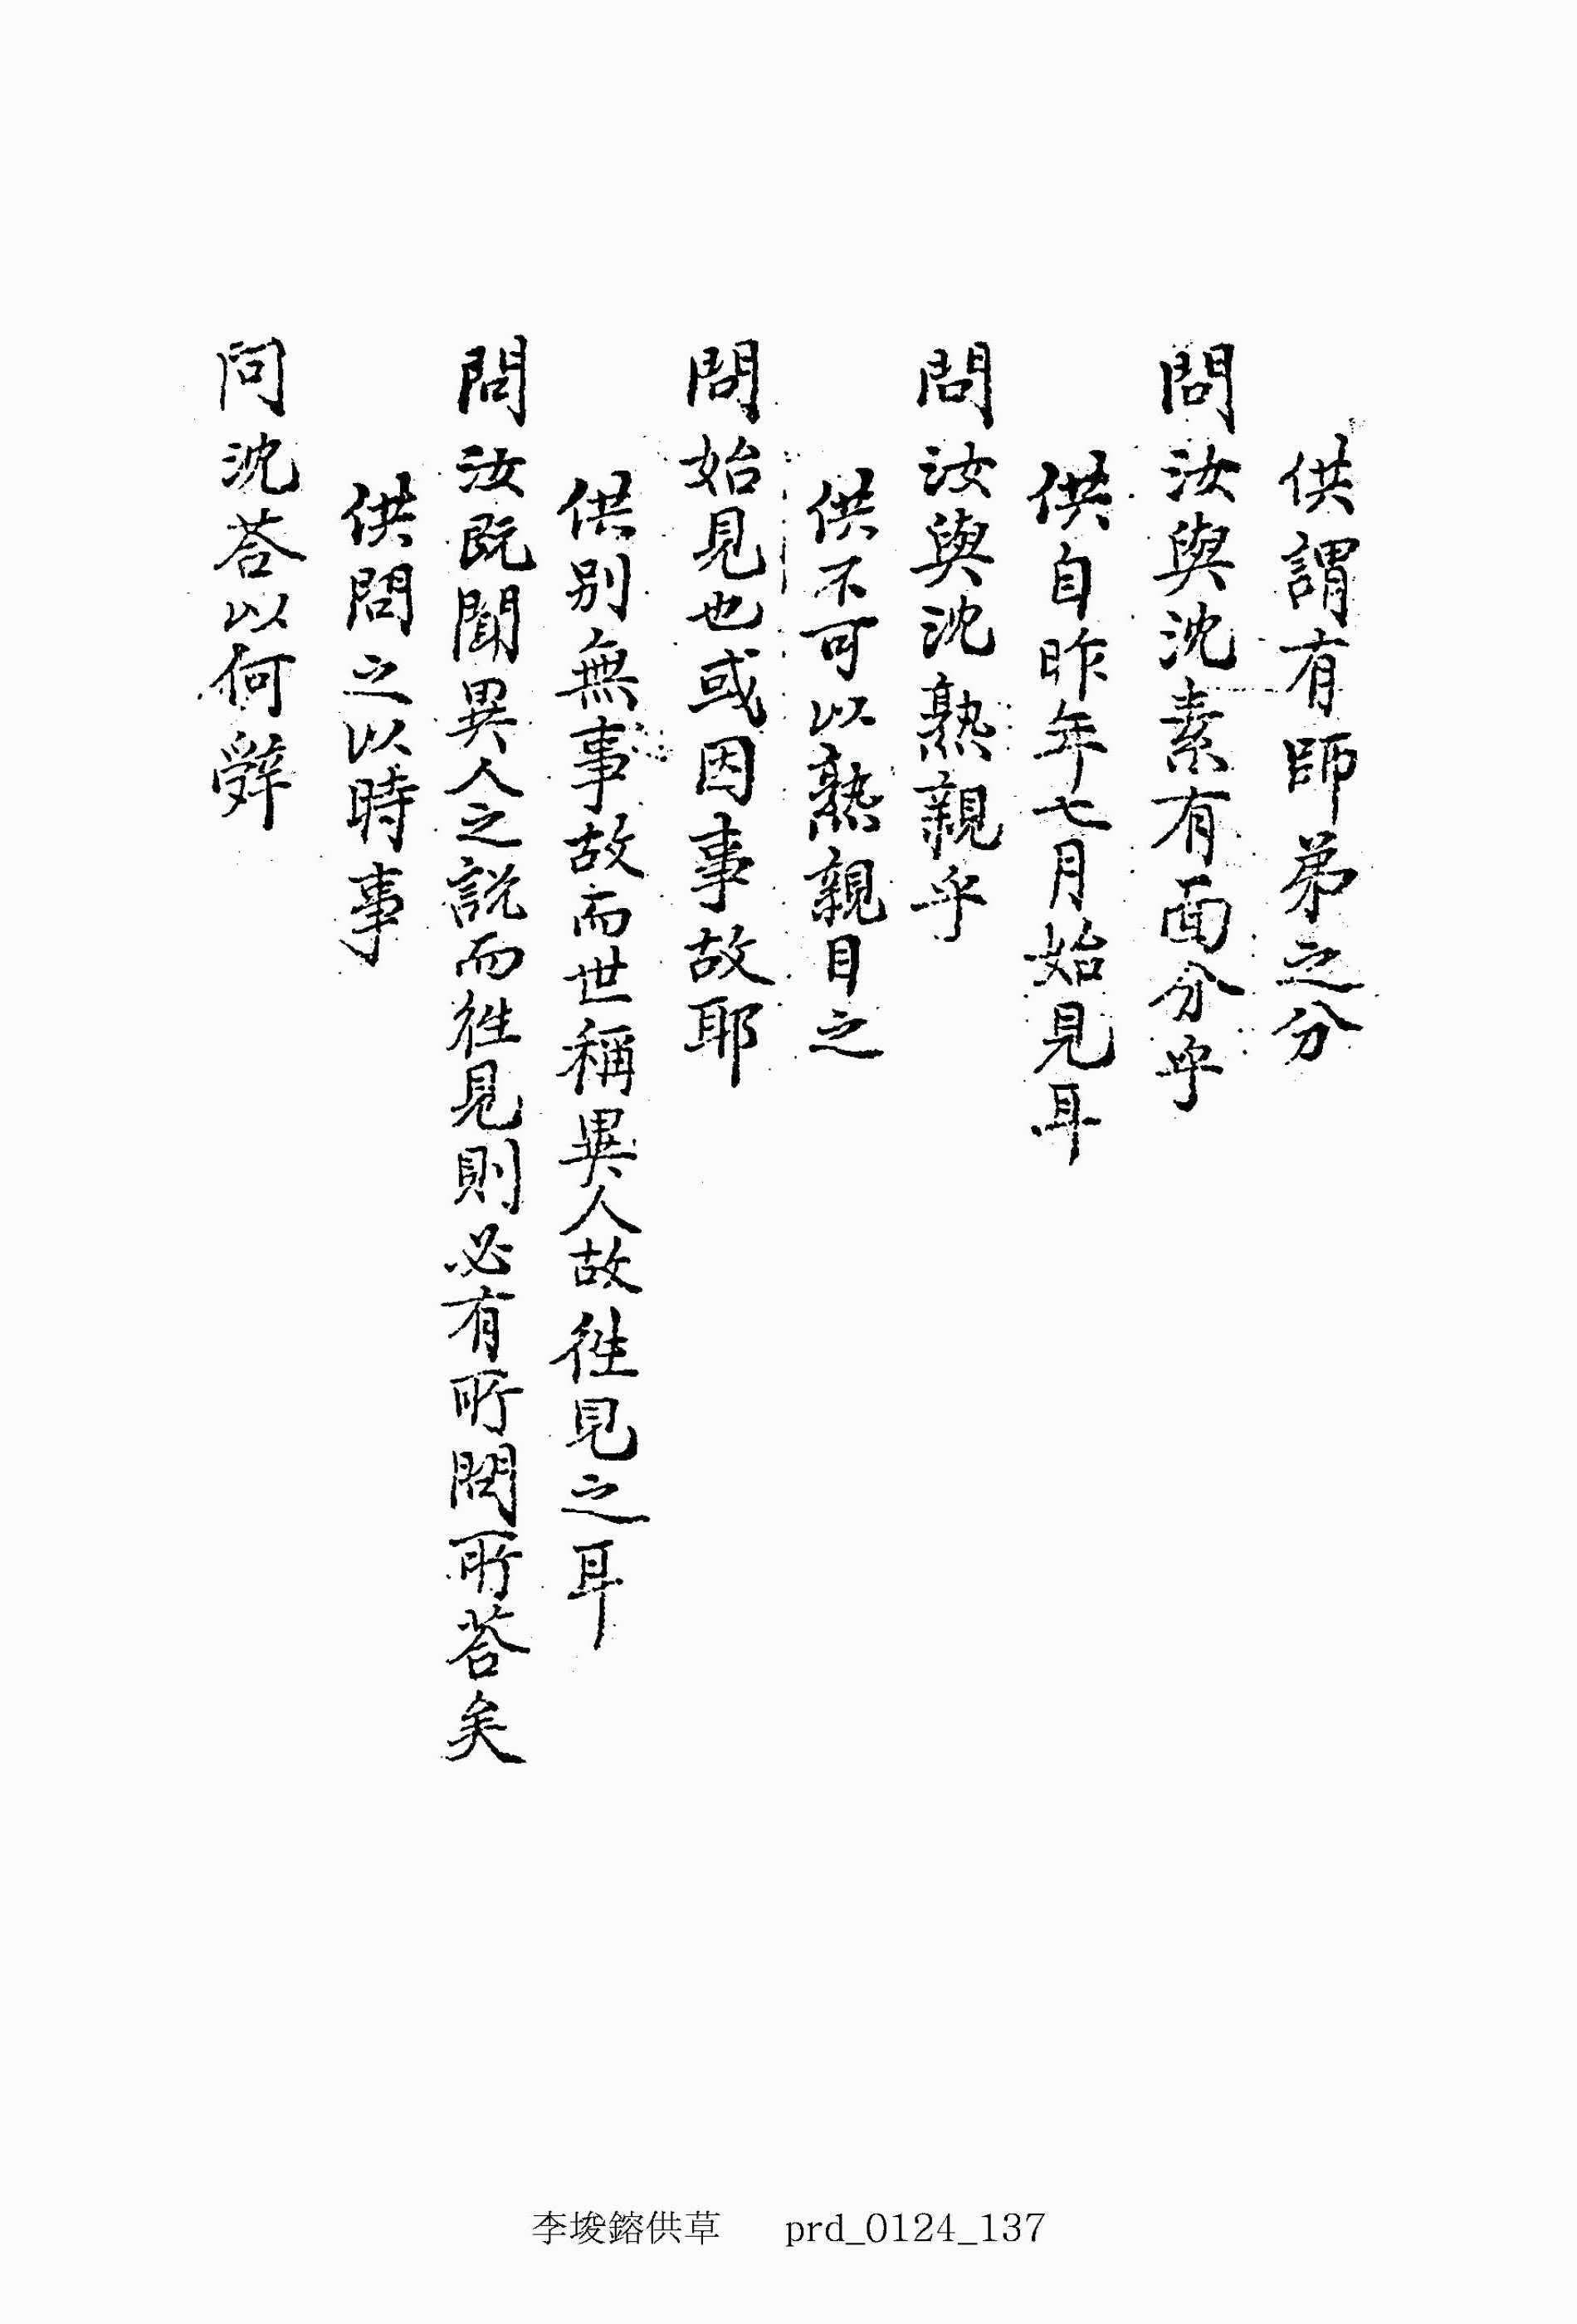 供謂有師弟之分
問汝與沈素有面分乎
供自昨年七月始見耳
問汝與沈熟親乎
供不可以熟親目之
問始見也或因事故耶
供別無事故而世稱異人故徃見之耳
問汝既聞異人之說而徃見則必有所問所荅矣
供問之以時事
問沈荅以何辭
李埈鎔供草 prd_0124_137